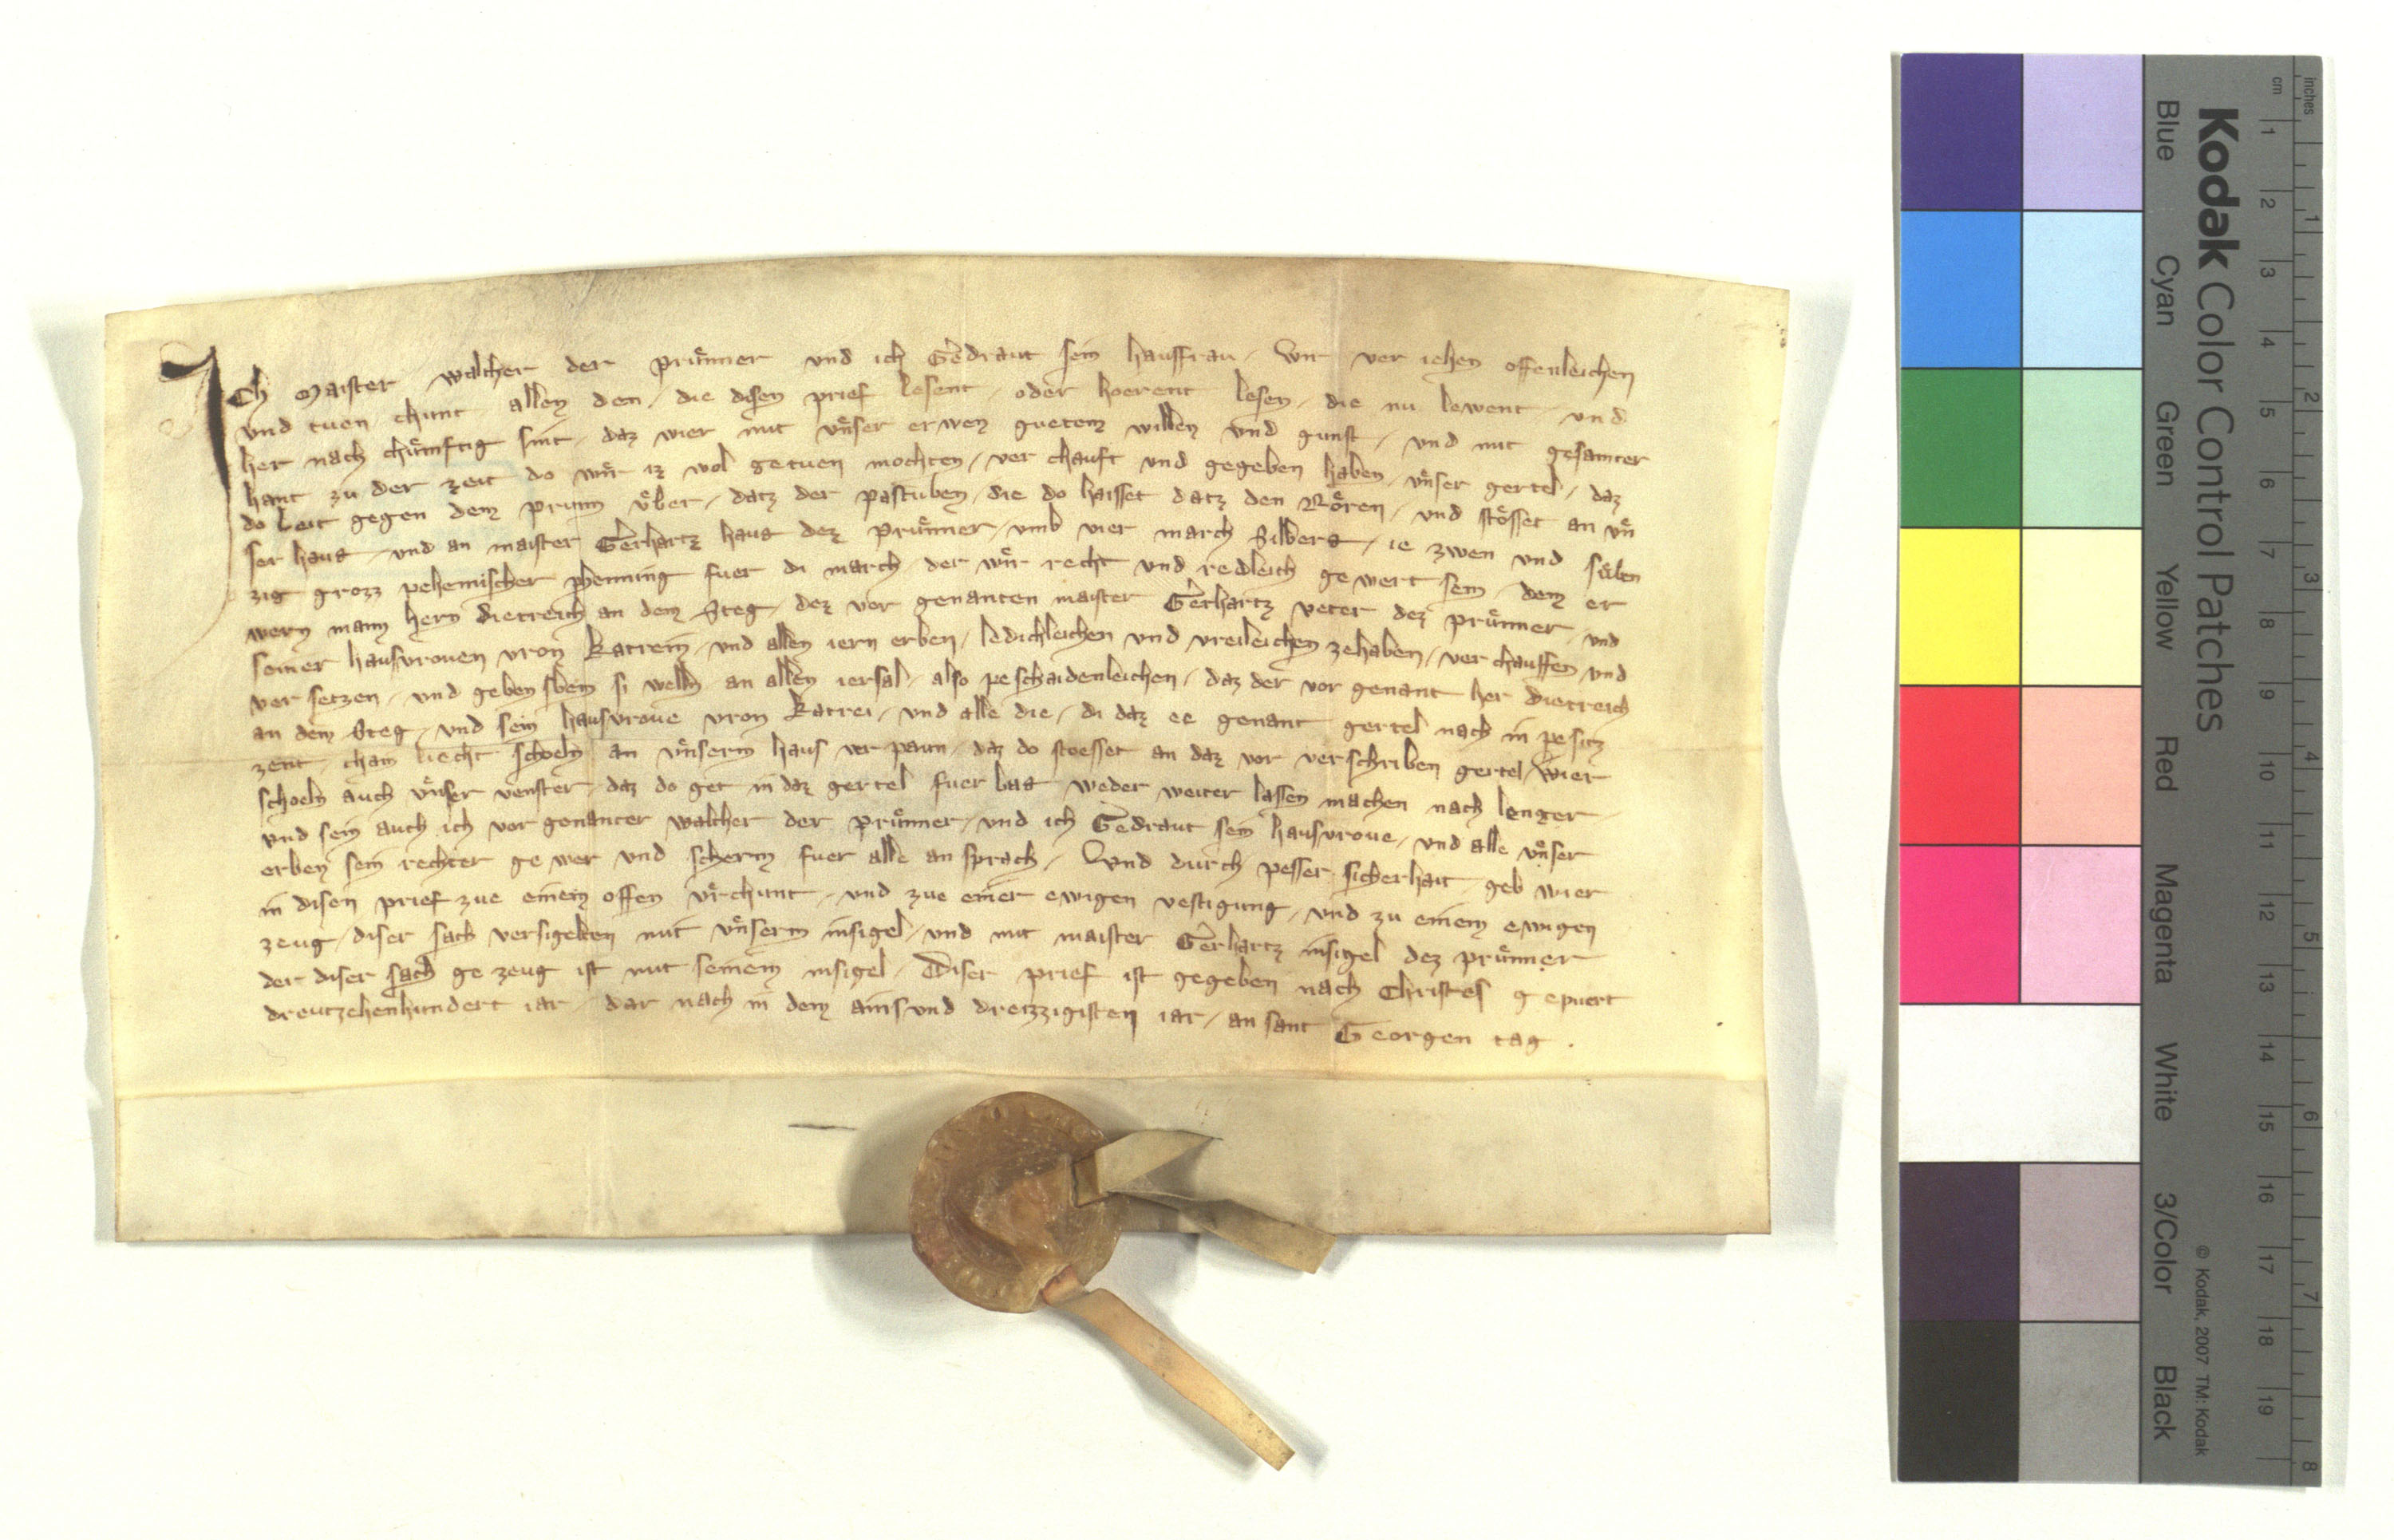 ICh maister walcher der pruͤnner und ich Gedraut sein hausfrau / wir ver iehen offenleichen
und tuen chunt allen den / die disen prief lesent / oder hoerent lesen / die nu lewent und
her nach chuͤnftig sint / daz wier mit uͤnser erwen guetem willen und gunst / und mit gesamter
hant zu der zeit do wiͤr iz wol getuen mochten / ver chauft und gegeben haben / uͤnser gertel / daz
do leit gegen dem prunn uͤber / datz der pastuben / die do haisset datz den Roͤren / und stoͤsset an uͤn
ser haus / und an maister Gerhartz haus dez pruͤnner / umb vier march silbers / ie zwen und siͤben
zig grozz pehemischer phenning fuer di march / der wiͤr recht und redleich gewert sein / dem er
wern mann hern Dietreich an dem Steg / dez vor genanten maister Gerhartz veter dez pruͤnner / und
seiner hausvrouen vron Katrein / und allen iern erben / ledichleichen und vreileichen zehaben / ver chauffen und
ver setzen / und geben swem si welln an allen iersal / also peschaidenleichen / daz der vor genant her Dietreich
an dem Steg / und sein hausvroue vron Katrei / und alle die / di daz ee genant gertel nach in pesitz
zent / chain liecht schoeln an uͤnserm haus ver paun / daz do stoesset an daz vor verschriben gertel / Wier
schoeln auch uͤnser venster / daz do get in daz gertel fuer bas weder weiter lassen machen nach lenger
und sein auch ich vor genanter walcher der pruͤnner / und ich Gedraut sein hausvroue / und alle uͤnser
erben sein rechter gewer und scherm fuer alle ansprach / Und durch pesser sicherhait / geb wier
in disen prief zue einem offen uͤrchunt / und zue einer ewigen vestigung / und zu einem ewigen
zeug / diser sach versigelten mit uͤnserm insigel / und mit maister Gerhartz insigel dez pruͤnner
der diser sach gezeug ist mit seinem insigel / Diser prief ist gegeben nach Christes gepuert
dreutzehenhundert iar / dar nach in dem ains und dreizzigisten iar / an sant Georgen tag .
Kodak Color Control Patches
© Kodak, 2007 TM: Kodak
Blue Cyan Green Yellow Red Magenta White 3/Color Black
cm 1 2 3 4 5 6 7 8 9 10 11 12 13 14 15 16 17 18 19
inches 1 2 3 4 5 6 7 8